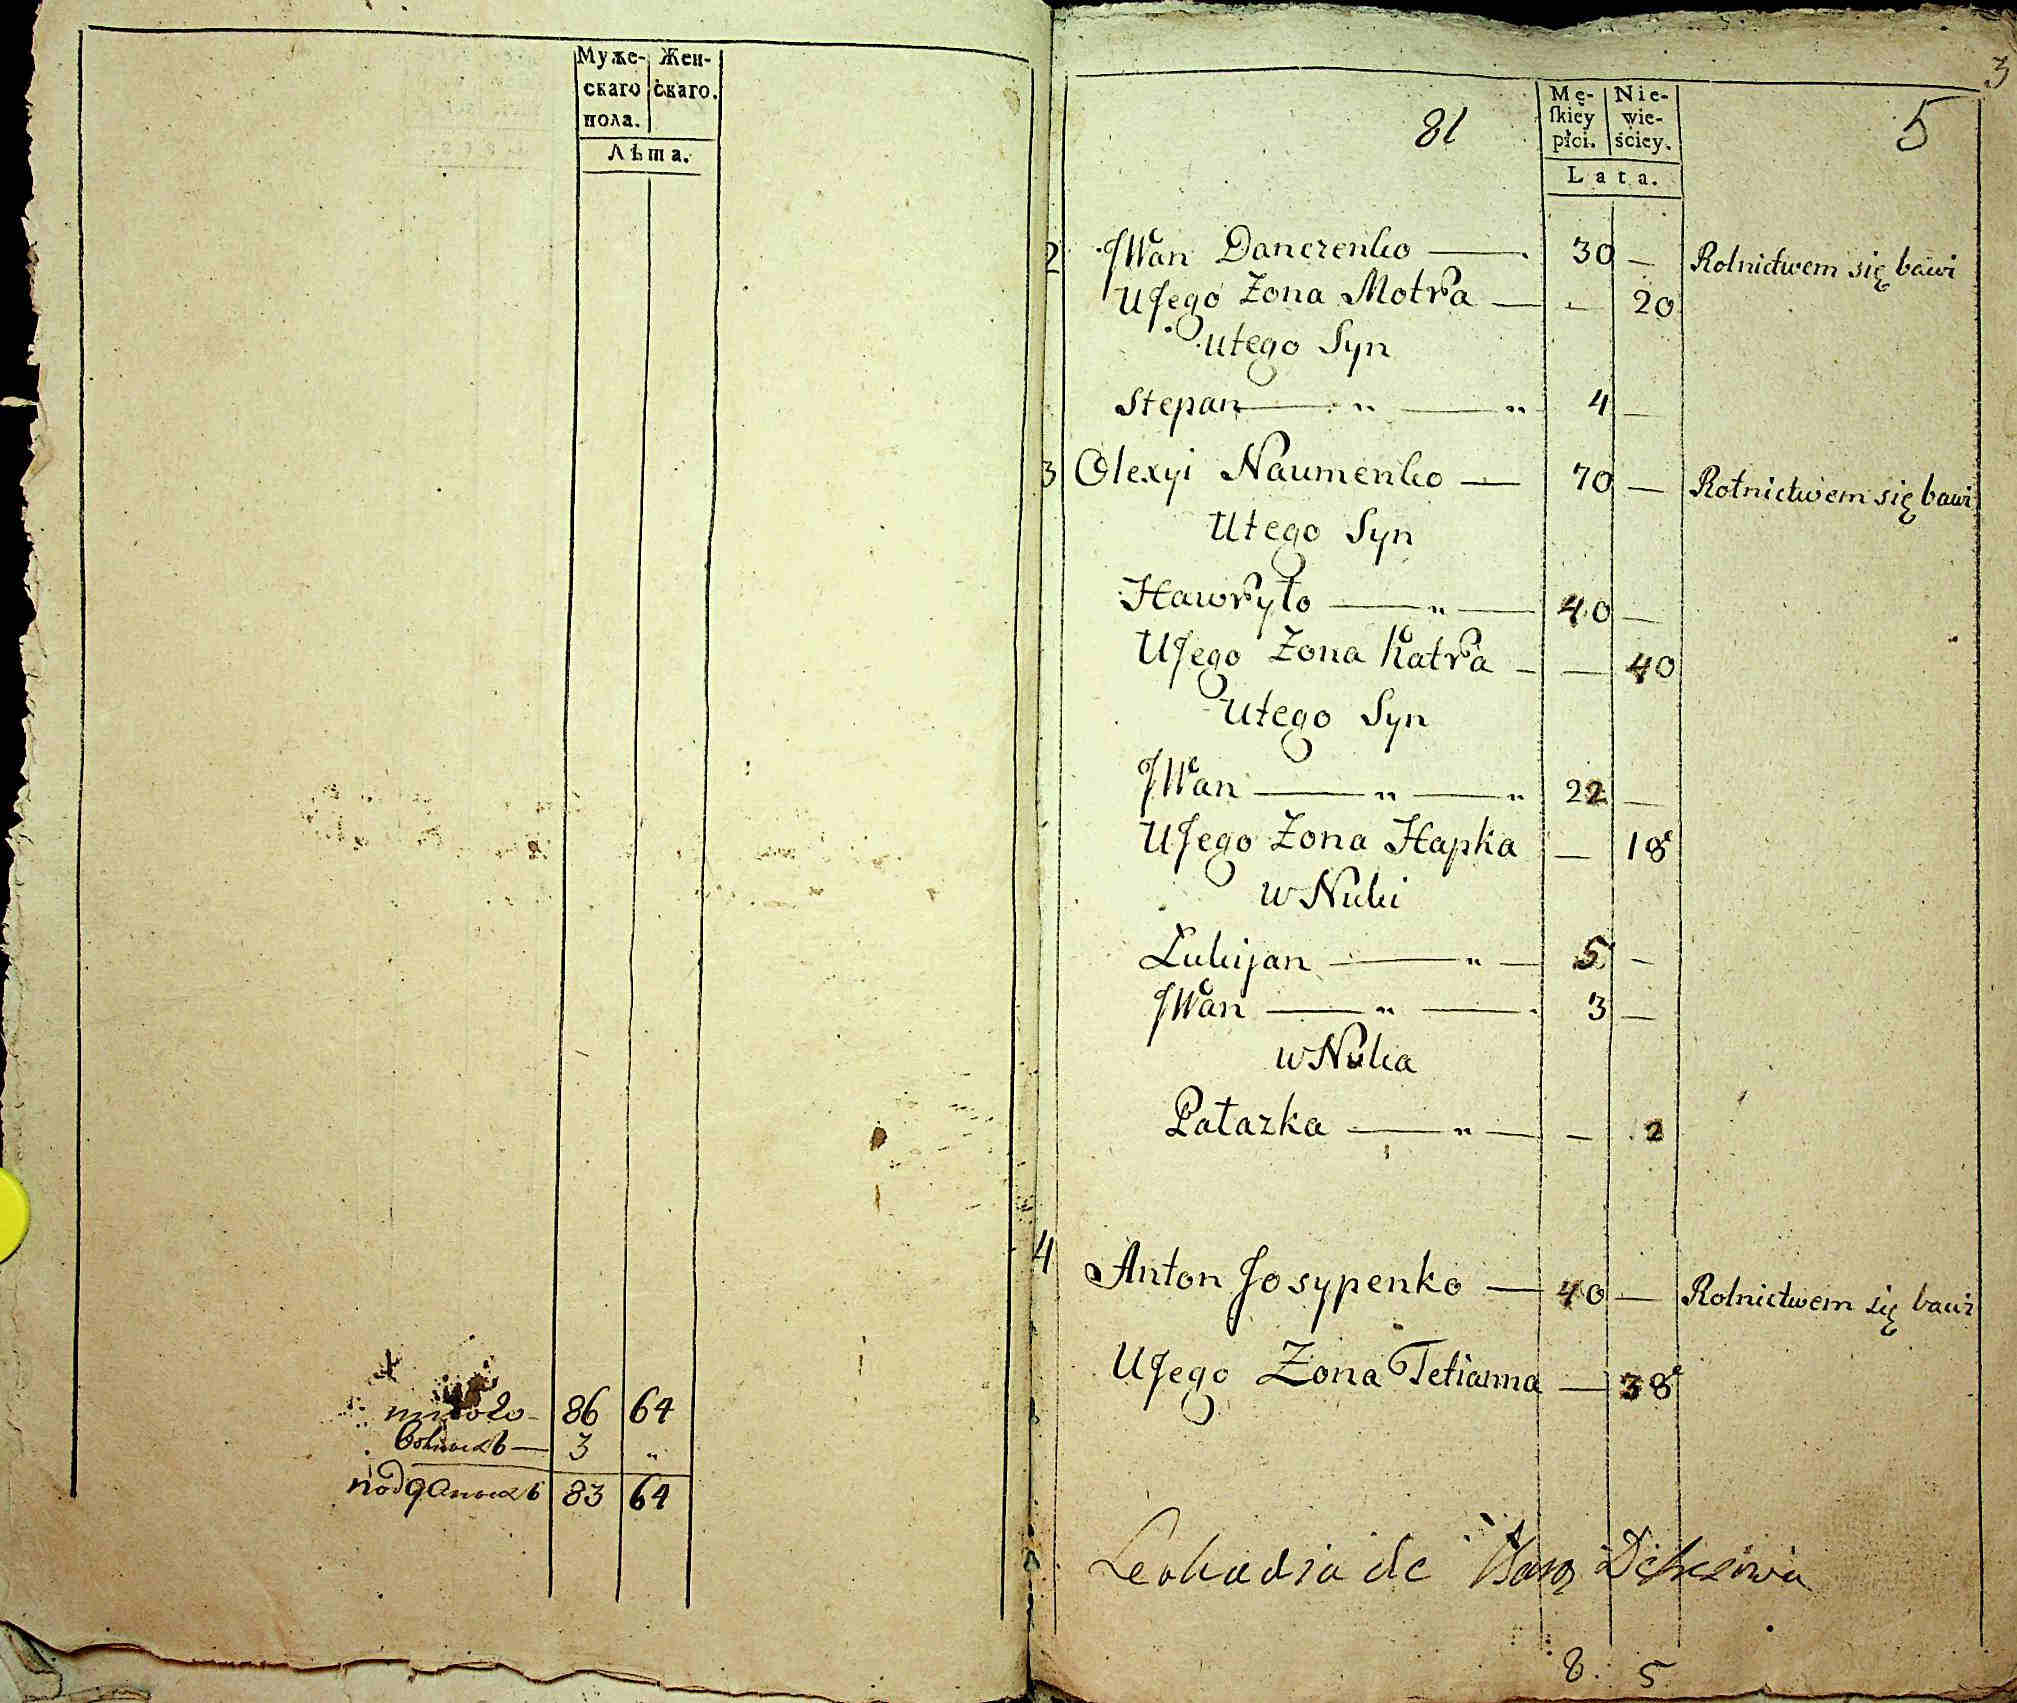 Муже- Жен-
скаго скаго.
пола.
Лѣта.
86 64
3 "
83 64
3
81 5
Mę- Nie-
skiey wie-
płci. ściey.
Lata.
2 JWan Danczenko — 30 — Rolnictwem się bawi
UJego Żona Motra — — 20
utego Syn
Stepan — " — " 4 —
3 Olexyi Naumenko — 70 — Rolnictwem się bawi
Utego Syn
Hawryło — " — 40 —
UJego Żona Katra — — 40
Utego Syn
JWan — " — " 22 —
UJego Żona Hapka — 18
wNuki
Łukijan — " — 5 —
JWan — " — 3 —
wNuka
Pałazka — " — — 2
4 Anton Josypenko — 40 — Rolnictwem się bawi
UJego Żona Tetianna — 38
Leokadia de
8. 5